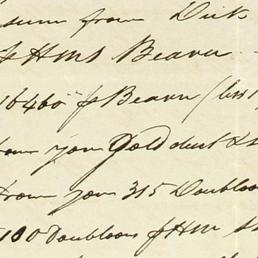 sum from Dick
p HMS Beaver
16460 p Beaver (less
from yon Gold dust & s
from yon 315 Doubloo
100 Doubloons p HM